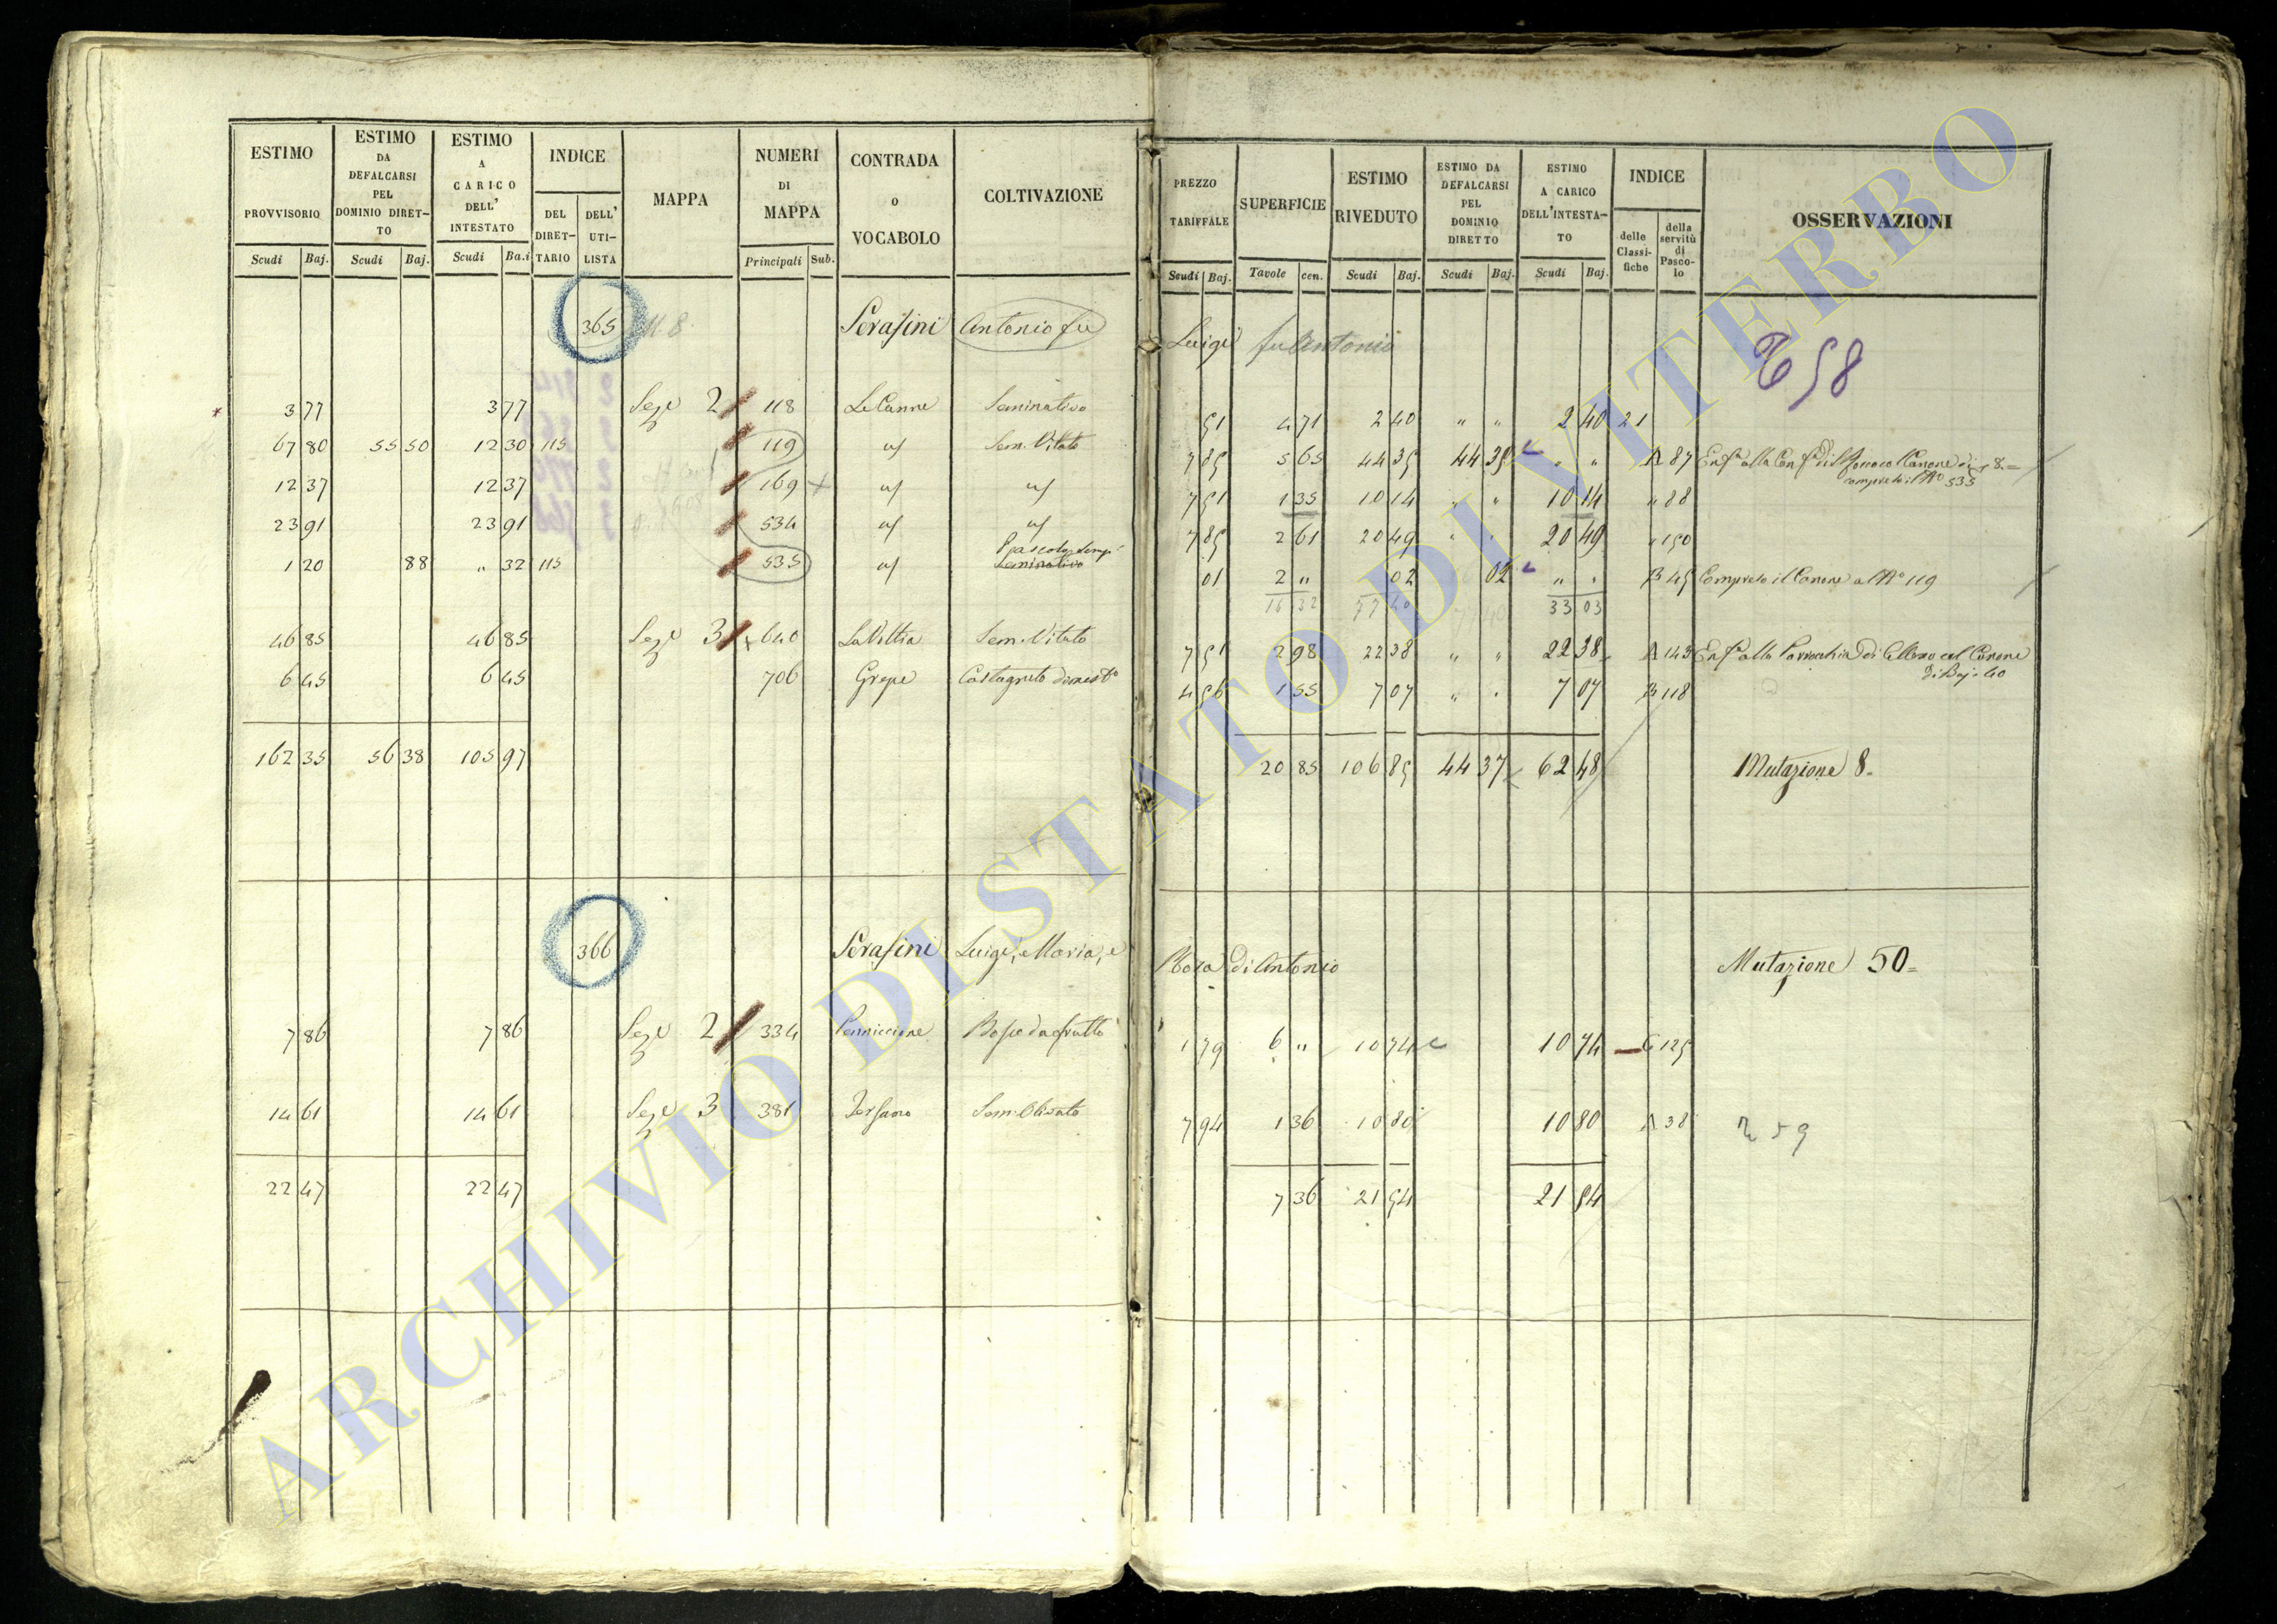 ESTIMO PROVVISORIO
ESTIMO DA DEFALCARSI PEL DOMINIO DIRET-TO
ESTIMO A CARICO DELL' INTESTATO
INDICE
DEL DIRET-TARIO
DELL' UTI-LISTA
MAPPA
NUMERI DI MAPPA
CONTRADA o VOCABOLO
COLTIVAZIONE
PREZZO TARIFFALE
SUPERFICIE
ESTIMO RIVEDUTO
ESTIMO DA DEFALCARSI PEL DOMINIO DIRETTO
ESTIMO A CARICO DELL'INTESTA-TO
INDICE
delle Classi-fiche
della servitù di Pasco-lo
OSSERVAZIONI
Scudi Baj. Scudi Baj. Scudi Ba.i Principali Sub.
Scudi Baj. Tavole cen. Scudi Baj. Scudi Baj. Scudi Baj.
365 M. 8. Serafini Antonio fu Luigi fu Antonio
658
3 77 3 77 Seze 2 118 Le Canne Seminativo 51 4 71 2 40 " " 2 40 21
67 80 55 50 12 30 115 119 " Sem. Vitato 7 85 5 65 44 35 44 35 " " A 87 Enf. alla Conf. di S. Rocco Canone di 8.=
compreso il No 535
12 37 12 37 169 + " " 7 51 1 35 10 14 " " 10 14 " 88
23 91 23 91 534 " " 7 85 2 61 20 49 " " 20 49 " 150
Pascolo
1 20 88 " 32 115 535 " Seminativo 01 2 " 02 02 " " B 45 Compreso il Canone al No 119
16 32 77 40 77 40 33 03
46 85 46 85 Seze 3 640 La Vittia Sem. Vitato 7 51 2 98 22 38 " " 22 38 A 143 Enf. alla Parrocchia di Celleno col Canone
di Baj. 40
6 45 6 45 706 Grepe Castagneto domestº 4 56 1 55 7 07 " " 7 07 B 118
162 35 56 38 105 97 20 85 106 85 44 37 62 48 Mutazione 8.
366 Serafini Luigi, Maria, e Rosa di Antonio Mutazione 50=
7 86 7 86 Seze 2 334 Penniccione Bosco da frutto 1 79 6 " 10 74 10 74 C 125
14 61 14 61 Seze 3 381 Sem. Olivato 7 94 1 36 10 80 10 80 A 38 59
22 47 22 47 7 36 21 54 21 54
ARCHIVIO DI STATO DI VITERBO